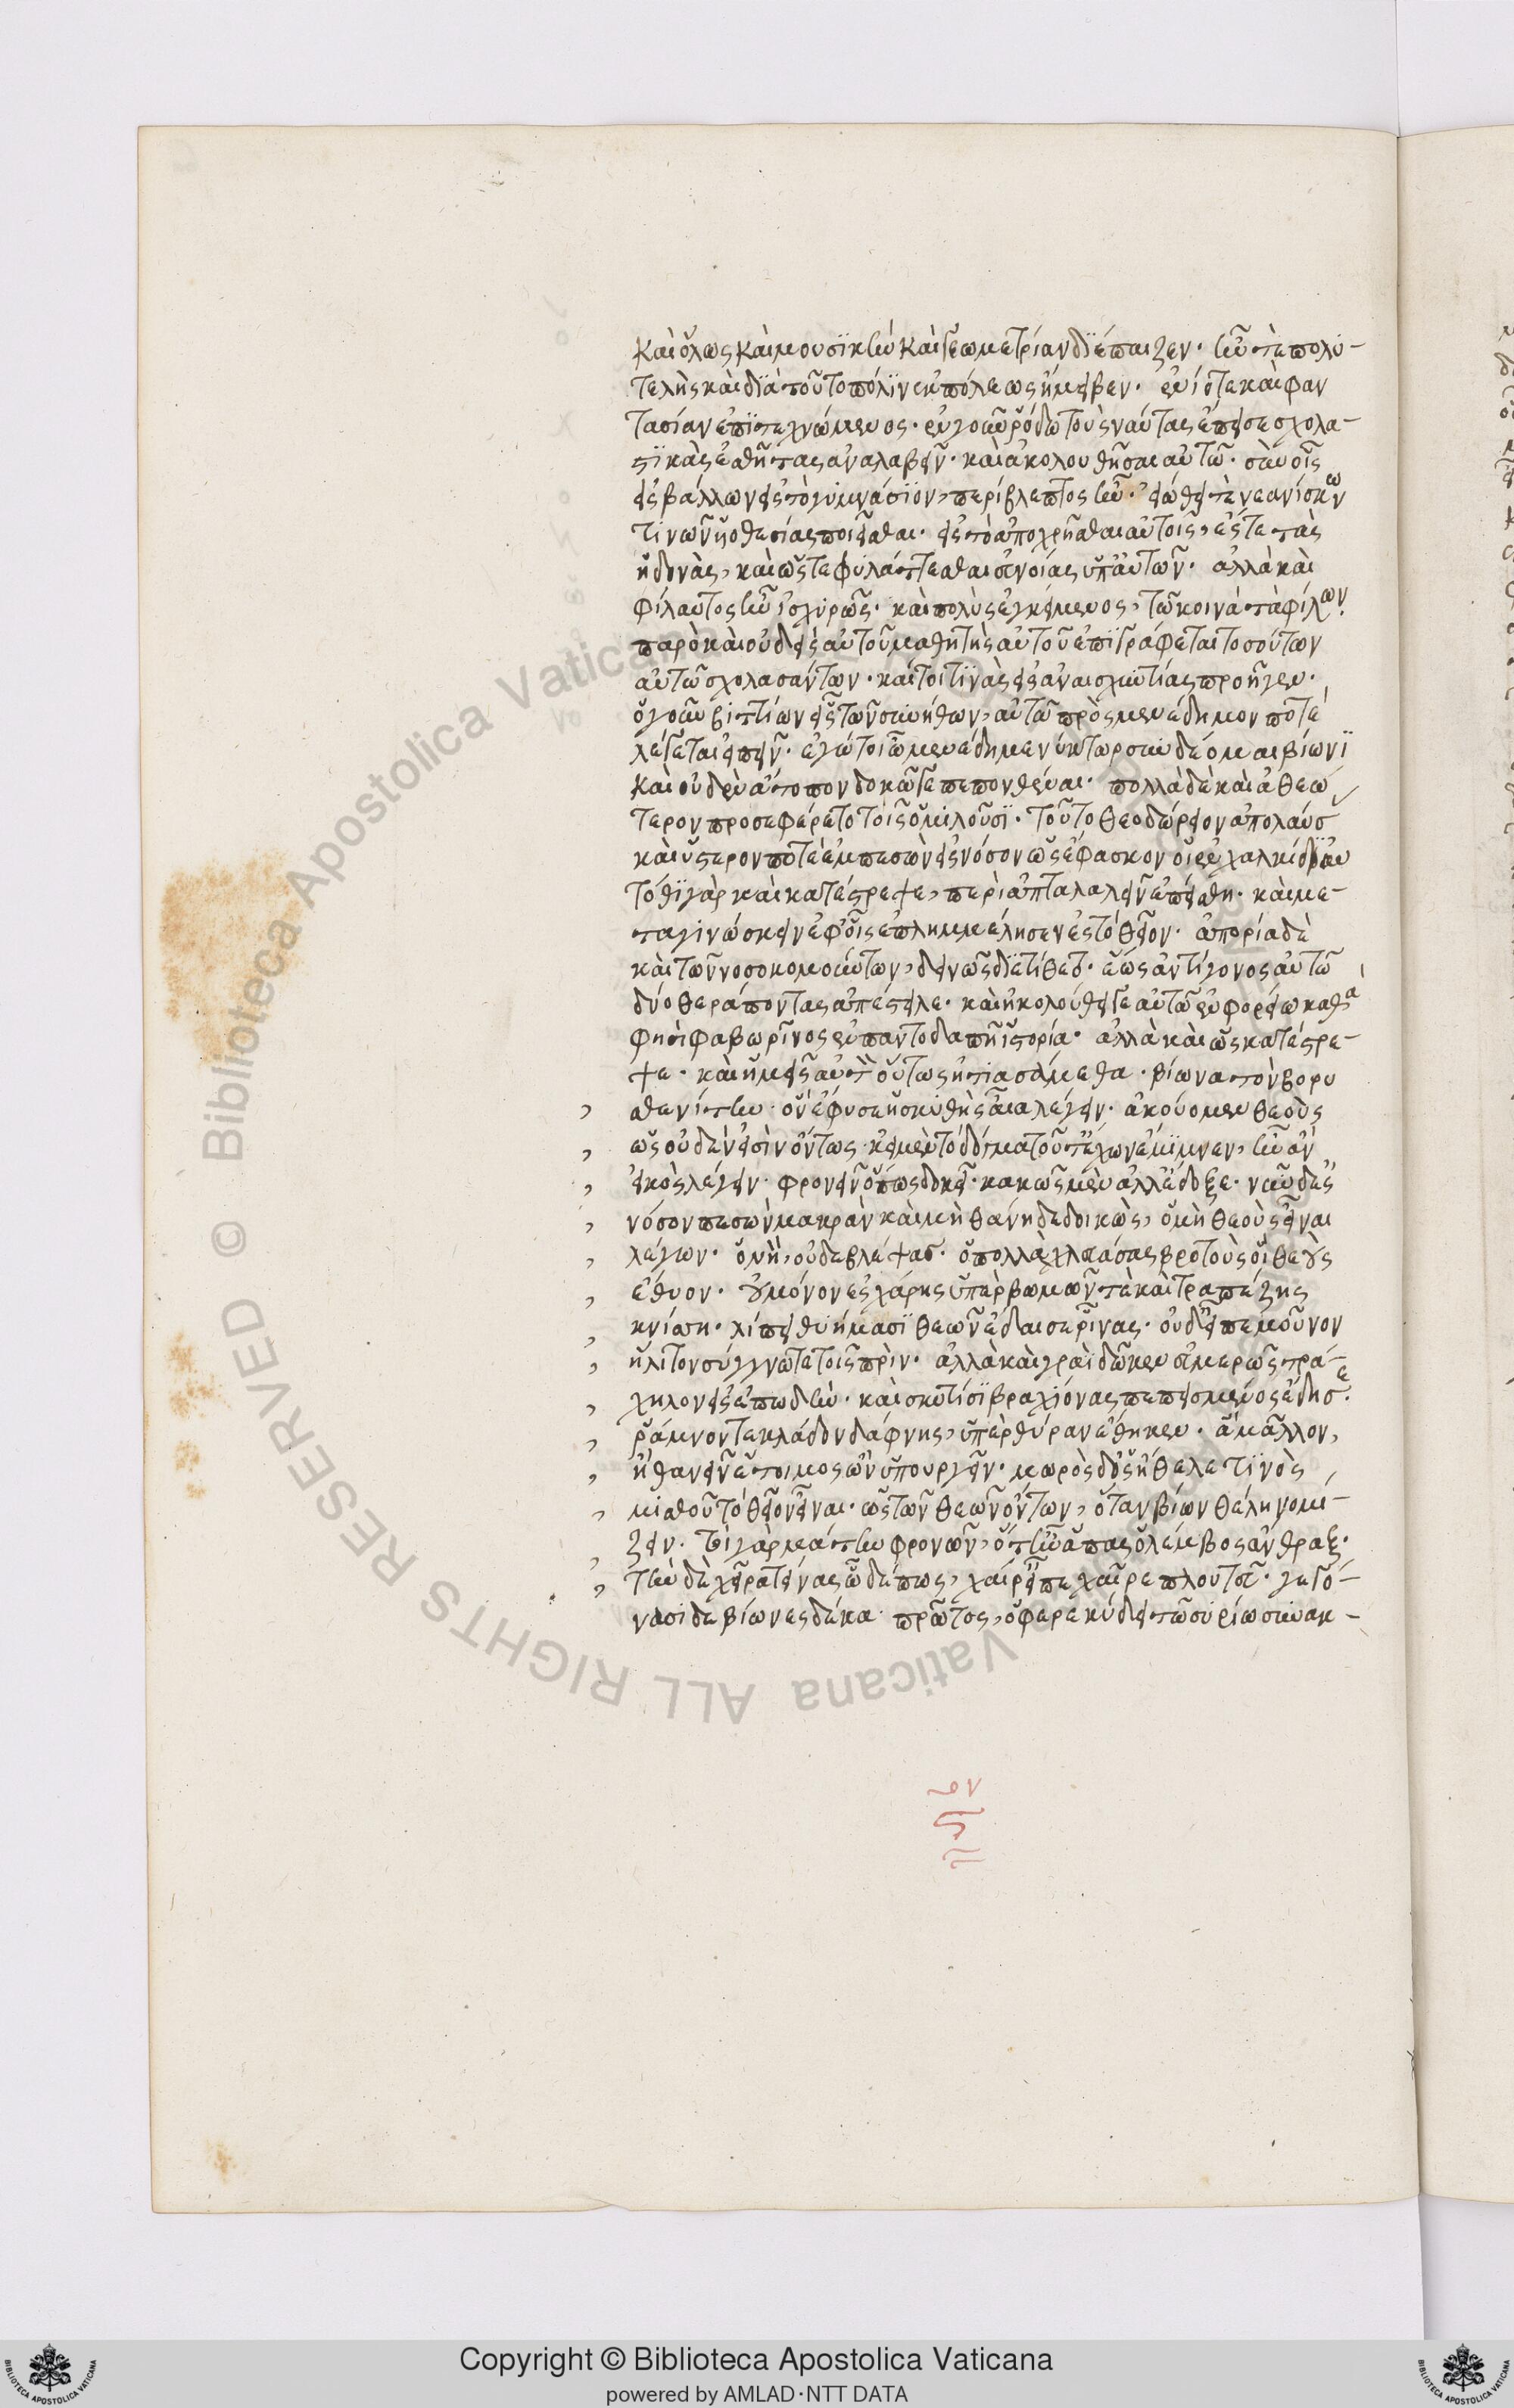 καὶ ὅλως καὶ μουσϊκὴν καὶ γεωμετρίαν δϊέπαιζεν· ἦν τε πολυ-
τελὴς καὶ δϊὰ τοῦτο πόλϊν ἐκ πόλεως ἤμειβεν· ἐνίοτε καὶ φαν
τασίαν ἐπϊτεχνώμενος· ἐν γοῦν ῥόδω τοὺς ναύτας ἔπεισε σχολα-
στϊκὰς ἐσθῆτας ἀναλαβεῖν· καὶ ἀκολουθῆσαι αὐτῶ· σὺν οἷς
εἰσβάλλων εἰς τὸ γυμνάσϊον, περίβλεπτος ἦν· εἰώθει τε νεανίσκων
τινῶν ὑοθεσίας ποιεῖσθαι· εἰς τὸ ἀποχρῆσθαι αὐτοῖς, ἔς τε τὰς
ἡδονὰς, καὶ ὥστε φυλάττεσθαι εὐνοίας ὑπ' αὐτῶν· ἀλλὰ καὶ
φίλαυτος ἦν ἰσχυρῶς· καὶ πολὺς ἐγκείμενος, τῶ κοινὰ τὰ φίλων·
παρὸ καὶ οὐδεὶς αὐτοῦ μαθητὴς αὐτοῦ ἐπϊγράφεται τοσούτων
αὐτῶ σχολασάντων· καίτοι τϊνὰς εἰς ἀναισχυντίας προῆγεν·
ὁ γοῦν βιττίων εἷς τῶν συνήθων, αὐτῶ πρὸς μενέδημον ποτὲ
λέγεται εἰπεῖν· ἐγώτοι ὦ μενέδημε νύκτωρ συνδέομαι βίωνϊ
καὶ οὐδὲν ἄτοπον δοκῶ γε πεπονθέναι· πολλὰ δὲ καὶ ἀθεώ
τερον προσεφέρετο τοῖς ὁμιλοῦσϊ· τοῦτο θεοδώρειον ἀπολαύσ
καὶ ὕστερον ποτὲ ἐμπεσὼν εἰς νόσον ὡς ἔφασκον οἱ ἐν χαλκίδϊ αυ
τόθϊ γὰρ καὶ κατέστρεψε, περίαπτα λαβεῖν ἐπείσθη· καὶ με-
ταγινώσκειν ἐφ' οἷς ἐπλημμέλησεν ἐς τὸ θεῖον· ἀπορία δὲ
καὶ τῶν νοσοκομούντων, δεινῶς δϊετίθετ· ἕως ἀντίγονος αὐτῶ
δύο θεράποντας ἀπέστειλε· καὶ ἠκολούθει γε αὐτῶ ἐν φορείω καθὰ
φησὶ φαβωρῖνος ἐν παντοδαπῆ ἱστορία· ἀλλὰ καὶ ὡς κατέστρε-
ψε· καὶ ἡμεῖς αὐτὸν οὕτως ἠτιασάμεθα· βίωνα τὸν βορυ
σθενίτην· ὃν ἔφυσε γῆ σκυθὴς ἅμα λέγειν· ἀκούομεν θεοὺς
ὡς οὐδέν εἰσὶν ὄντως κεἰ μὲν τὸ δόγμα τοῦτ' ἔχων ἔμϊμνεν, ἦν ἂν
εἰκὸς λέγειν· φρονεῖν ὅπως δοκεῖ· κακῶς μὲν ἀλλ' ἔδοξε· νῦν δ' ἐς
νόσον πεσὼν μακρὰν καὶ μὴ θάνη δεδοικὼς, ὁ μὴ θεοὺς εἶναι
λέγων· ὁ νηὸν, οὐδὲ βλέψας· ὁ πολλὰ χλευάσας βροτοὺς οἳ θεοῖς
ἔθυον· οὐ μόνον ἐσχάρης ὑπὲρ βωμῶν τε καὶ τραπέζης
κνίσση· λίπει θυήμασϊ θεῶν ἔδαισε ῥῖνας· οὐδ' εἶπε μοῦνον
ἥλιτον σύγγνωτε τοῖς πρὶν· ἀλλὰ καὶ γραῒ δῶκεν εὐμερῶς τρά-
χηλον εἰς ἐπωδὴν· καὶ σκυτίσϊ βραχϊόνας πεπεισμένος ἔδησε·
ῥάμνον τε κλάδον δάφνης, ὑπὲρ θύραν ἔθηκεν· ἅμαλλον,
ἢ θανεῖν ἕτοιμος ὢν ὑπουργεῖν· μωρὸς δ' ὃς ἤθελε τϊνὸς
μισθοῦ τὸ θεῖον εἶναι· ὡς τῶν θεῶν ὄντων, ὅταν βίων θέλη νομί-
ζειν· τϊ γὰρ μάτην φρονῶν, ὅτ' ἦν ἅπας ὁ λέμβος ἄνθραξ·
τὴν δὲ χεῖρα τείνας ὧδέ πως, χαῖρ' εἶπε χαῖρε πλοῦτον· γεγό-
νασι δὲ βίωνες δέκα· πρῶτος, ὁ φερεκύδει τῶ συρίω συνακ-
Copyright © Biblioteca Apostolica Vaticana
powered by AMLAD·NTT DATA